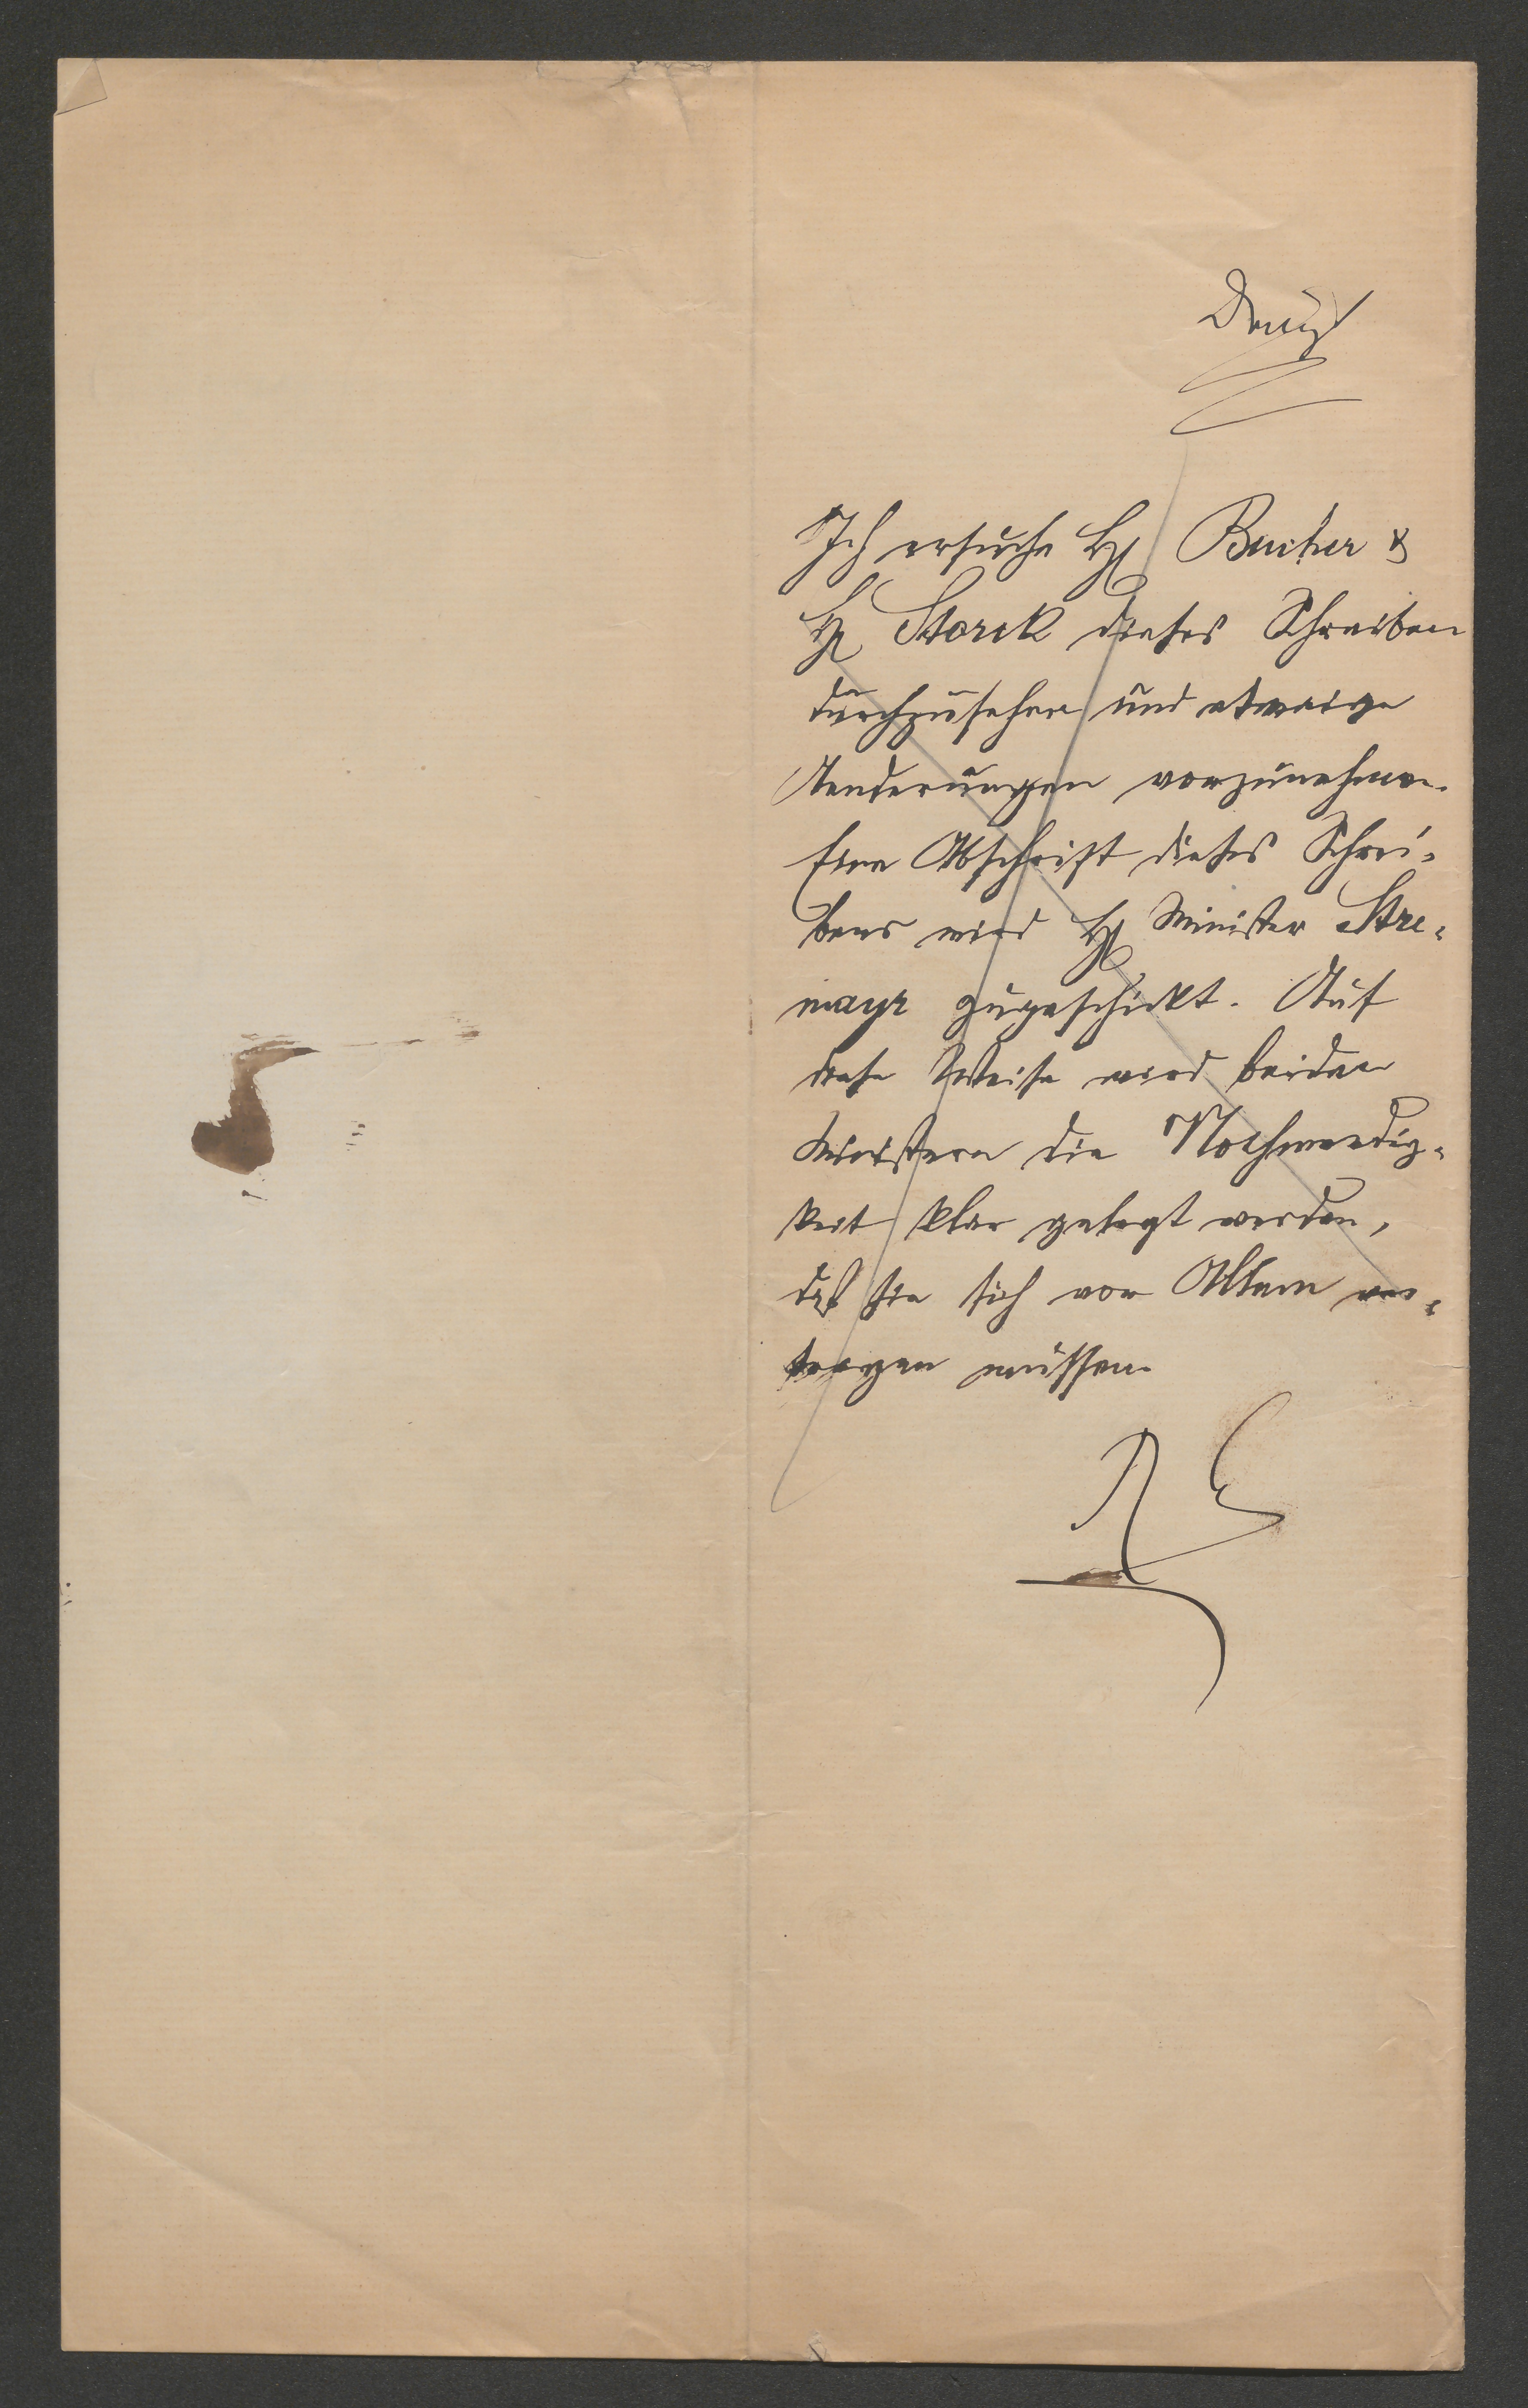 Ich ersuche H Bucher &
H Storck dieses Schreiben
durchzusehen und etwaige
Aenderungen vorzunehmen.
Eine Abschrift dieses Schrei-
bens wird H Minister Stre-
mayr zugeschickt. Auf
diese Weise wird beiden
Ministern die Nothwendig-
keit klar gelegt werden,
daß sie sich vor Allem ver-
tragen müssen.
RE